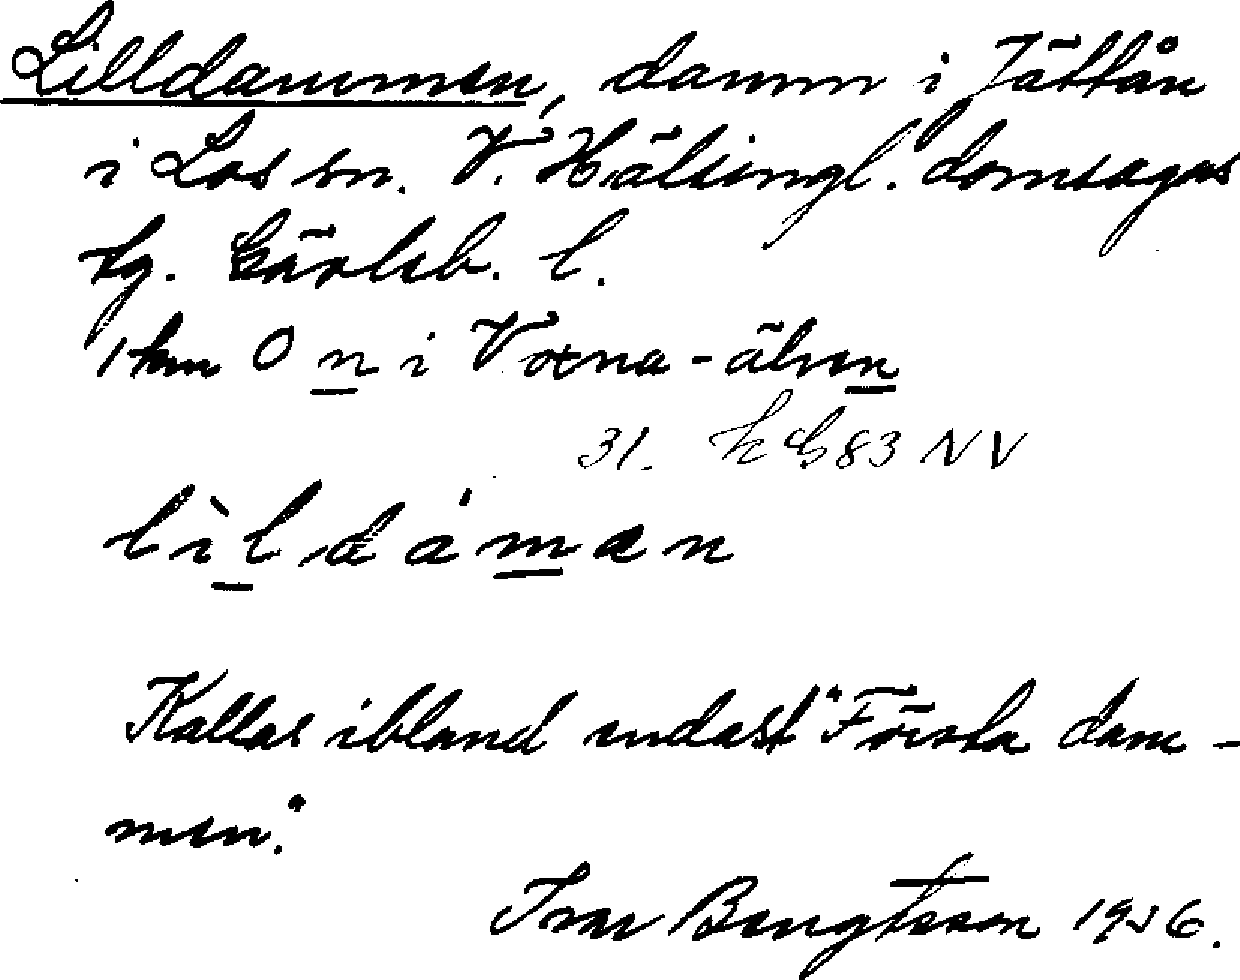 Lilldammen, damm i Jättån
i Los sn. V. Hälsingl. domsagas
tg. Gävleb. l.
1 km O n i Voxna-älven
31. h G83 NV
lìldáman
Kallas ibland endast "Första dam-
men."
Ivar Bengtsson 1926.